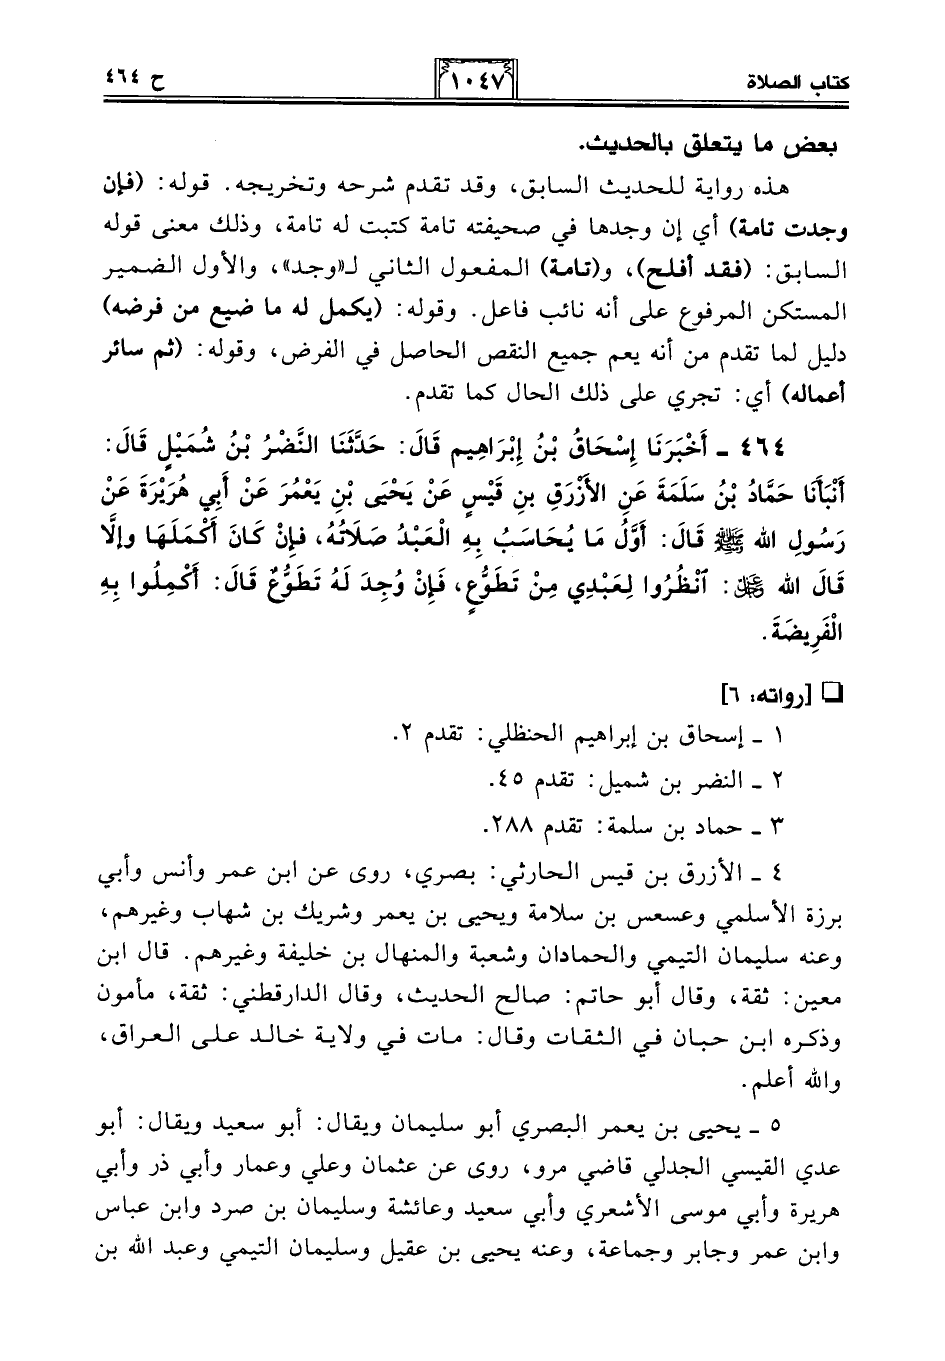 كتاب الصلاة ١٠٤٧ ح ٤٦٤
بعض ما يتعلق بالحديث.
هذه رواية للحديث السابق، وقد تقدم شرحه وتخريجه. قوله: (فإن
وجدت تامة) أي إن وجدها في صحيفته تامة كتبت له تامة، وذلك معنى قوله
السابق: (فقد أفلح)، و(تامة) المفعول الثاني لـ«وجد»، والأول الضمير
المستكن المرفوع على أنه نائب فاعل. وقوله: (يكمل له ما ضيع من فرضه)
دليل لما تقدم من أنه يعم جميع النقص الحاصل في الفرض، وقوله: (ثم سائر
أعماله) أي: تجري على ذلك الحال كما تقدم.
٤٦٤ ـ أَخْبَرَنَا إِسْحَاقُ بْنُ إِبْرَاهِيم قَالَ: حَدَّثَنَا النَّضْرُ بْنُ شُمَيْلٍ قَالَ:
أَنْبَأَنَا حَمَّادُ بْنُ سَلَمَةَ عَنِ الأَزْرَقِ بنِ قَيْسٍ عَنْ يَحْيَى بْنِ يَعْمُرَ عَنْ أَبِي هُرَيْرَةَ عَنْ
رَسُولِ الله ﷺ قَالَ: أَوَّلُ مَا يُحَاسَبُ بِهِ الْعَبْدُ صَلَاتُهُ، فإِنْ كَانَ أَكْمَلَهَا وإِلَّا
قَالَ الله ﷻ: ٱنْظُرُوا لِعَبْدِي مِنْ تَطَوُّعٍ، فَإِنْ وُجِدَ لَهُ تَطَوُّعٌ قَالَ: أَكْمِلُوا بِهِ
الْفَرِيضَةَ.
❑ [رواته: ٦]
١ ـ إسحاق بن إبراهيم الحنظلي: تقدم ٢.
٢ ـ النضر بن شميل: تقدم ٤٥.
٣ ـ حماد بن سلمة: تقدم ٢٨٨.
٤ ـ الأزرق بن قيس الحارثي: بصري، روى عن ابن عمر وأنس وأبي
برزة الأسلمي وعسعس بن سلامة ويحيى بن يعمر وشريك بن شهاب وغيرهم،
وعنه سليمان التيمي والحمادان وشعبة والمنهال بن خليفة وغيرهم. قال ابن
معين: ثقة، وقال أبو حاتم: صالح الحديث، وقال الدارقطني: ثقة، مأمون
وذكره ابن حبان في الثقات وقال: مات في ولاية خالد على العراق،
والله أعلم.
٥ ـ يحيى بن يعمر البصري أبو سليمان ويقال: أبو سعيد ويقال: أبو
عدي القيسي الجدلي قاضي مرو، روى عن عثمان وعلي وعمار وأبي ذر وأبي
هريرة وأبي موسى الأشعري وأبي سعيد وعائشة وسليمان بن صرد وابن عباس
وابن عمر وجابر وجماعة، وعنه يحيى بن عقيل وسليمان التيمي وعبد الله بن